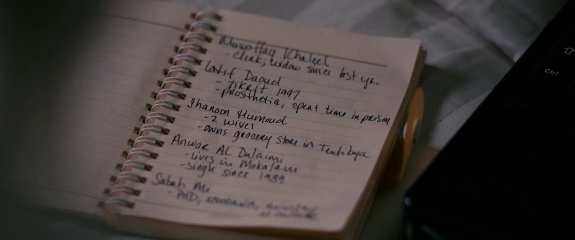 Muwaffaq Khaleel
- clerk, widow since last yr.
Latif Daoud
- Tikrit 1947
- prosthetic, spent time in prison
Sharoon Humoud
- 2 wives
- owns grocery store in
Anwar AL Dulaimi
- lives in Mokalam
- single since 1989
Sabah Ali
- PhD,
Ctrl